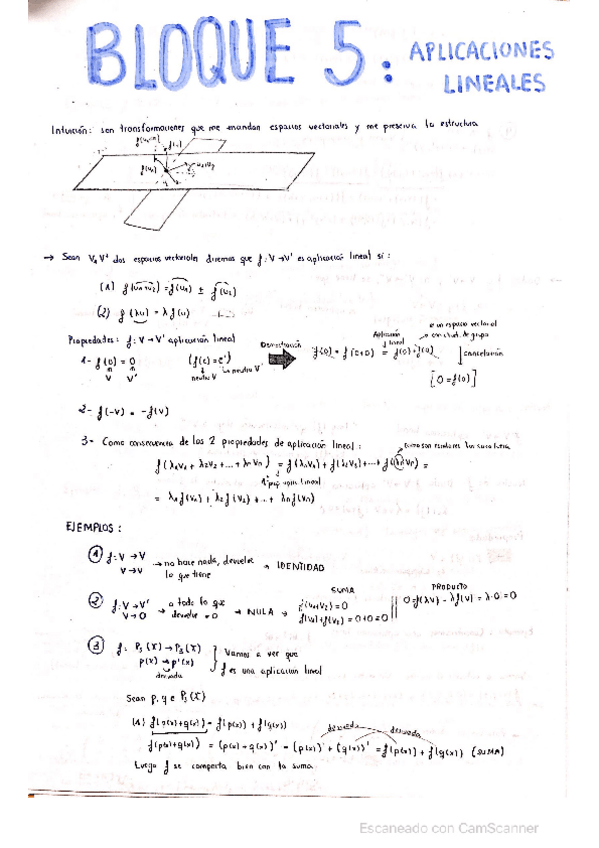 BLOQUE 5: APLICACIONES
LINEALES
Intuición: son transformaciones que me mandan espacios vectoriales y me preserva la estructura
→ Sean V₁V' dos espacios vectoriales diremos que f: V → V' es aplicación lineal si:
(1) f(u₁+u₂) = f(u₁) ± f(u₂)
(2) f(λu) = λ f(u)
Propiedades: f: V → V' aplicación lineal
1- f(0) = 0 (f(e) = e')
V V' neutro V neutro V'
Demostración
f(0) = f(0+0) = f(0)+f(0)
Aplicación lineal
es un espacio vectorial
cancelación
[0 = f(0)]
2- f(-v) = -f(v)
3- Como consecuencia de las 2 propiedades de aplicación lineal:
f(λ₁V₁ + λ₂V₂ + ... + λnVn) = f(λ₁V₁) + f(λ₂V₂) + ... + f(λnVn) =
= λ₁f(V₁) + λ₂f(V₂) + ... + λnf(Vn)
EJEMPLOS:
① f: V → V
V → V → no hace nada, devuelve lo que tiene → IDENTIDAD
② f: V → V'
V → 0 → a todo lo que devuelve = 0 → NULA →
SUMA
f(V₁+V₂) = 0
f(V₁)+f(V₂) = 0+0 = 0
PRODUCTO
0 = f(λV) - λf(V) = λ·0 = 0
③ f: P₃(X) → P₃(X)
p(x) → p'(x)
derivada
Vamos a ver que
f es una aplicación lineal
Sean p, q ∈ P₃(X)
(1) f(p(x)+q(x)) = f(p(x)) + f(q(x))
derivada derivada
f(p(x)+q(x)) = (p(x)+q(x))' = (p(x))' + (q(x))' = f(p(x)) + f(q(x)) (SUMA)
Luego f se comporta bien con la suma.
Escaneado con CamScanner